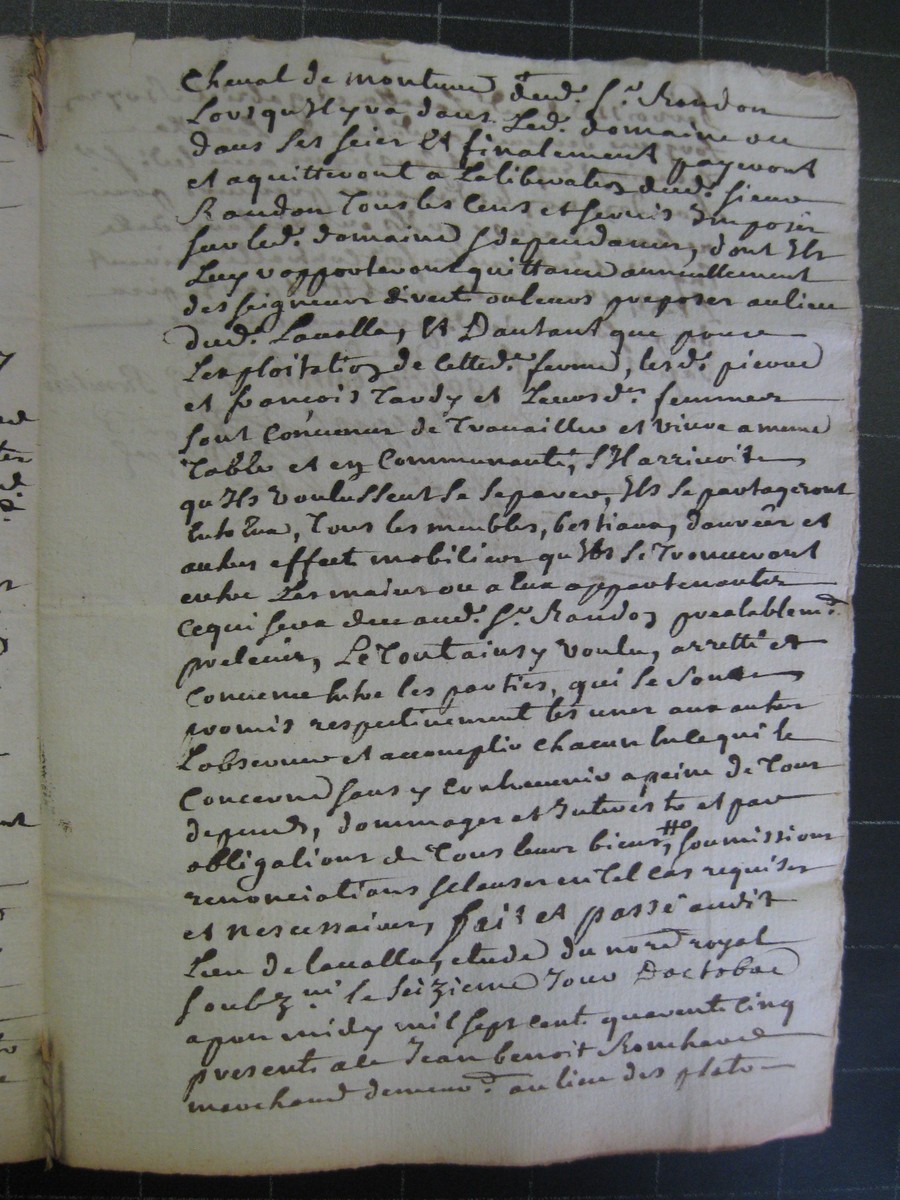 Cheval de monture dud. Sr. Randon
Lors qu'Il y va dans Led. domaine ou
dans Les foier Et finalement payeront
et aquitteront a La liberation dud. sieur
Randon Tous les Cens et servis Imposés
sur led. domaine & dependances, dont Ils
Luy rapporteront quittance annuellement
des seigneurs directs ou leurs preposés au lieu
dud. Lavalla, Et D'autant que pour
L'exploitation de cette d. ferme, les d. pierre
et françois Tardy et Leurs d. femmes
sont Convenus de Travailler et vivre a meme
Table et en Communauté, S'Il arrivoit
qu'Ils voulussent se separer, Ils se partageront
Entre Eux, Tous les meubles, bestiaux, danrées et
autres effects mobiliers qu'Ils se Trouveront
entre Les mains ou a Eux appartenantes
Ce qui sera deu aud. Sr. Randon prealablemt.
prelevé, Le Tout ainsy voulu, arretté et
Convenu Entre les parties, qui se sont
promis respectivement les unes aux autres
L'observer et accomplir chacun En ce qui le
Concerne sans y Contrevenir a peine de Tous
depens, dommages et Interests et par
obligations de Tous leurs biens, soumissions
renonciations & clauses en tel cas requises
et nescessaires, fait et passé audit
Lieu de Lavalla, etude du nore royal
soubz né le seizieme Jour D'octobre
apres midy mil sept cent quarente cinq
presents a ce Jean benoit
marchand demeurt. au lieu des plats